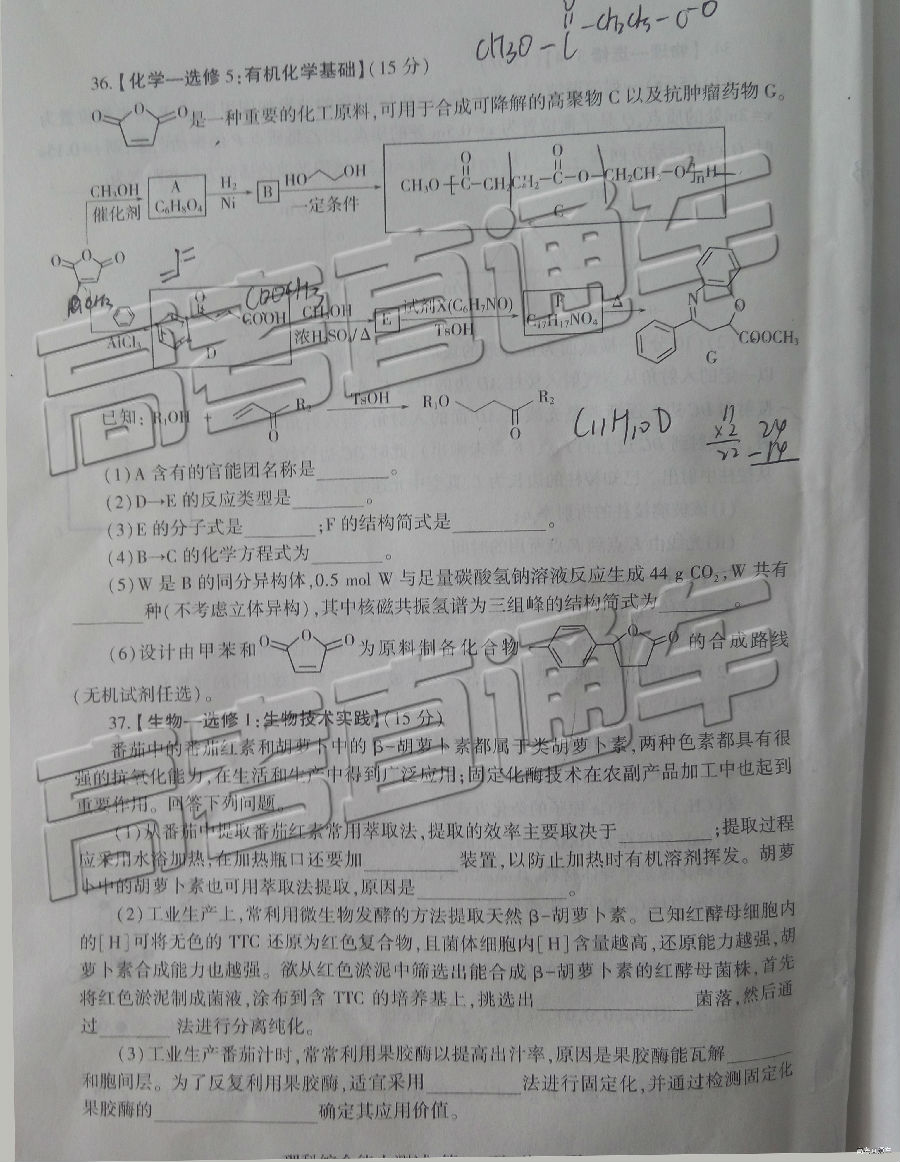 CH3O-C-CH2CH2-O-O
O
36.【化学—选修5:有机化学基础】(15分)
是一种重要的化工原料,可用于合成可降解的高聚物C以及抗肿瘤药物G。
CH3OH 催化剂 A C6H8O4 H2 Ni B HO OH 一定条件 CH3O C-CH2CH2-C-O-CH2CH2-O n H
C
COOCH3
AlCl3 O COOH D CH3OH 浓H2SO4/Δ E 试剂X(C6H7NO) TsOH F C17H17NO4 Δ N O COOCH3 G
已知: R1OH + R2 O TsOH R1O R2 O
C11H10O 11 ×2 22 24 -14
(1)A含有的官能团名称是 。
(2)D→E的反应类型是 。
(3)E的分子式是 ;F的结构简式是 。
(4)B→C的化学方程式为 。
(5)W是B的同分异构体,0.5 mol W与足量碳酸氢钠溶液反应生成44 g CO2,W共有
种(不考虑立体异构),其中核磁共振氢谱为三组峰的结构简式为 。
(6)设计由甲苯和 为原料制备化合物 的合成路线
(无机试剂任选)。
37.【生物—选修1:生物技术实践】(15分)
番茄中的番茄红素和胡萝卜中的β-胡萝卜素都属于类胡萝卜素,两种色素都具有很
强的抗氧化能力,在生活和生产中得到广泛应用;固定化酶技术在农副产品加工中也起到
重要作用。回答下列问题。
(1)从番茄中提取番茄红素常用萃取法,提取的效率主要取决于 ;提取过程
应采用水浴加热,在加热瓶口还要加 装置,以防止加热时有机溶剂挥发。胡萝
卜中的胡萝卜素也可用萃取法提取,原因是 。
(2)工业生产上,常利用微生物发酵的方法提取天然β-胡萝卜素。已知红酵母细胞内
的[H]可将无色的TTC还原为红色复合物,且菌体细胞内[H]含量越高,还原能力越强,胡
萝卜素合成能力也越强。欲从红色淤泥中筛选出能合成β-胡萝卜素的红酵母菌株,首先
将红色淤泥制成菌液,涂布到含TTC的培养基上,挑选出 菌落,然后通
过 法进行分离纯化。
(3)工业生产番茄汁时,常常利用果胶酶以提高出汁率,原因是果胶酶能瓦解
和胞间层。为了反复利用果胶酶,适宜采用 法进行固定化,并通过检测固定化
果胶酶的 确定其应用价值。
高考直通车
高考直通车